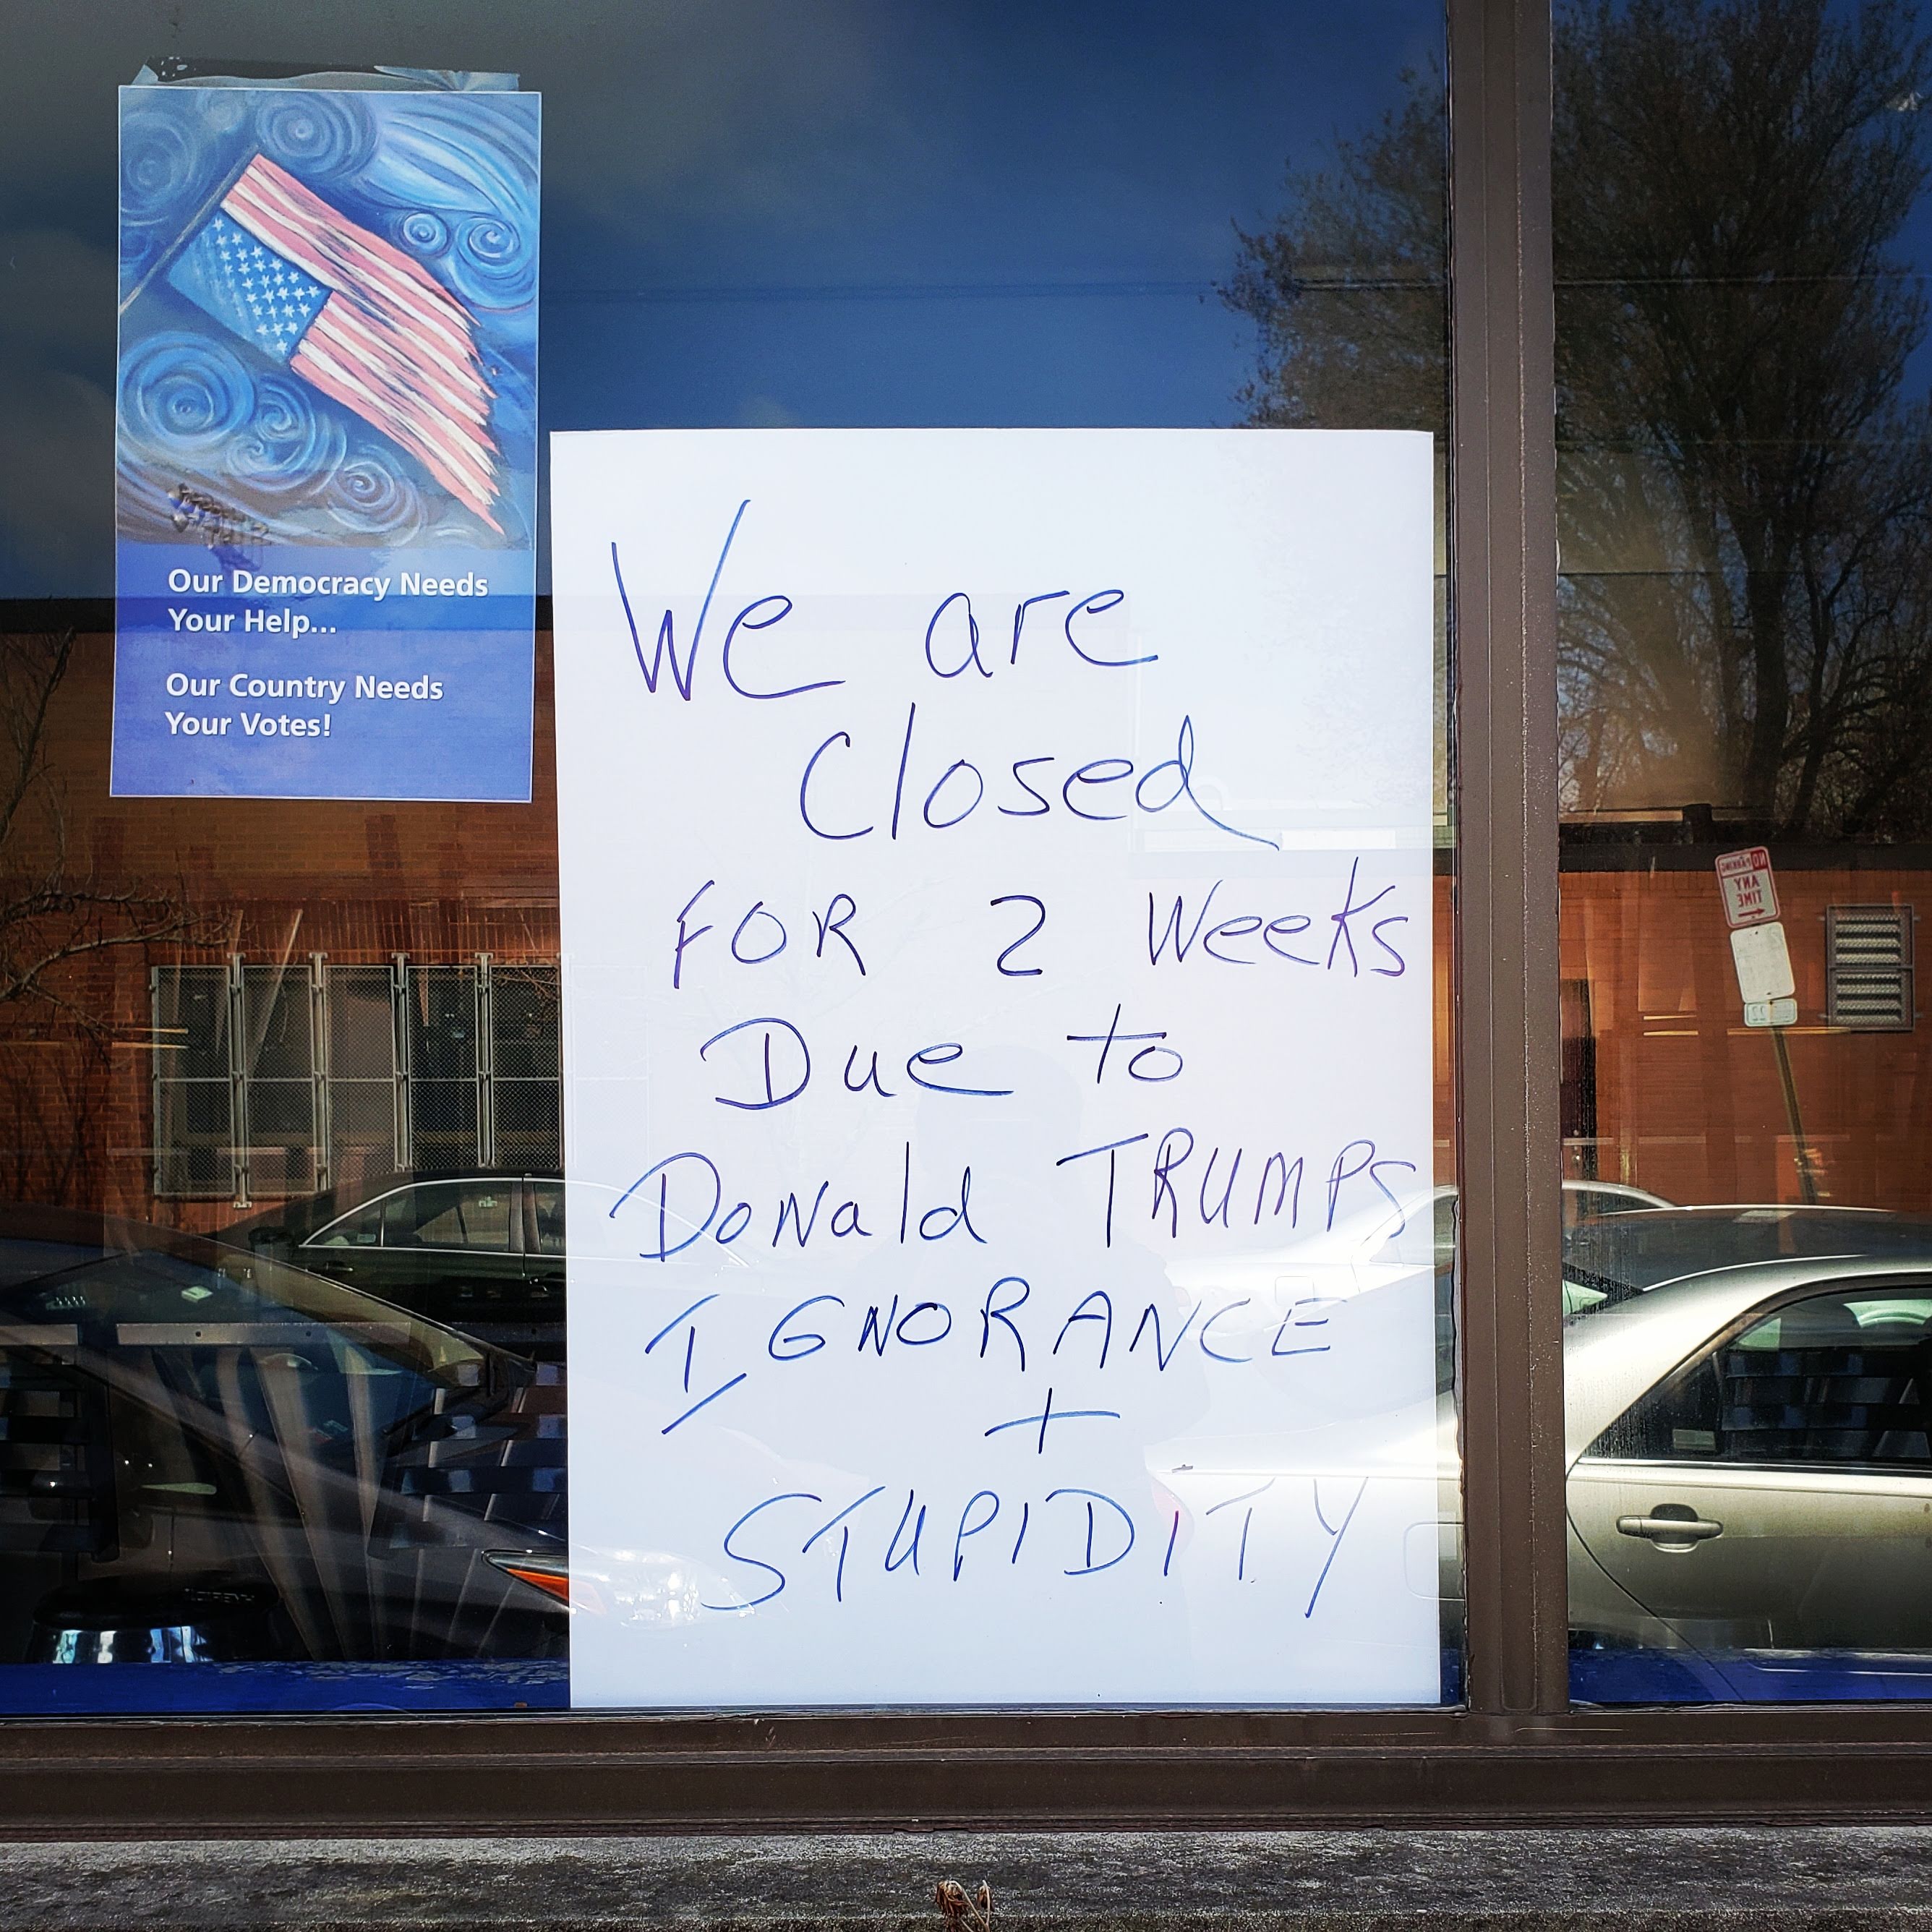 Our Democracy Needs
Your Help...
Our Country Needs
Your Votes!
We are
Closed
FOR 2 Weeks
Due to
Donald TRUMPS
IGNORANCE
+
STUPIDITY
NO PARKING
ANY
TIME